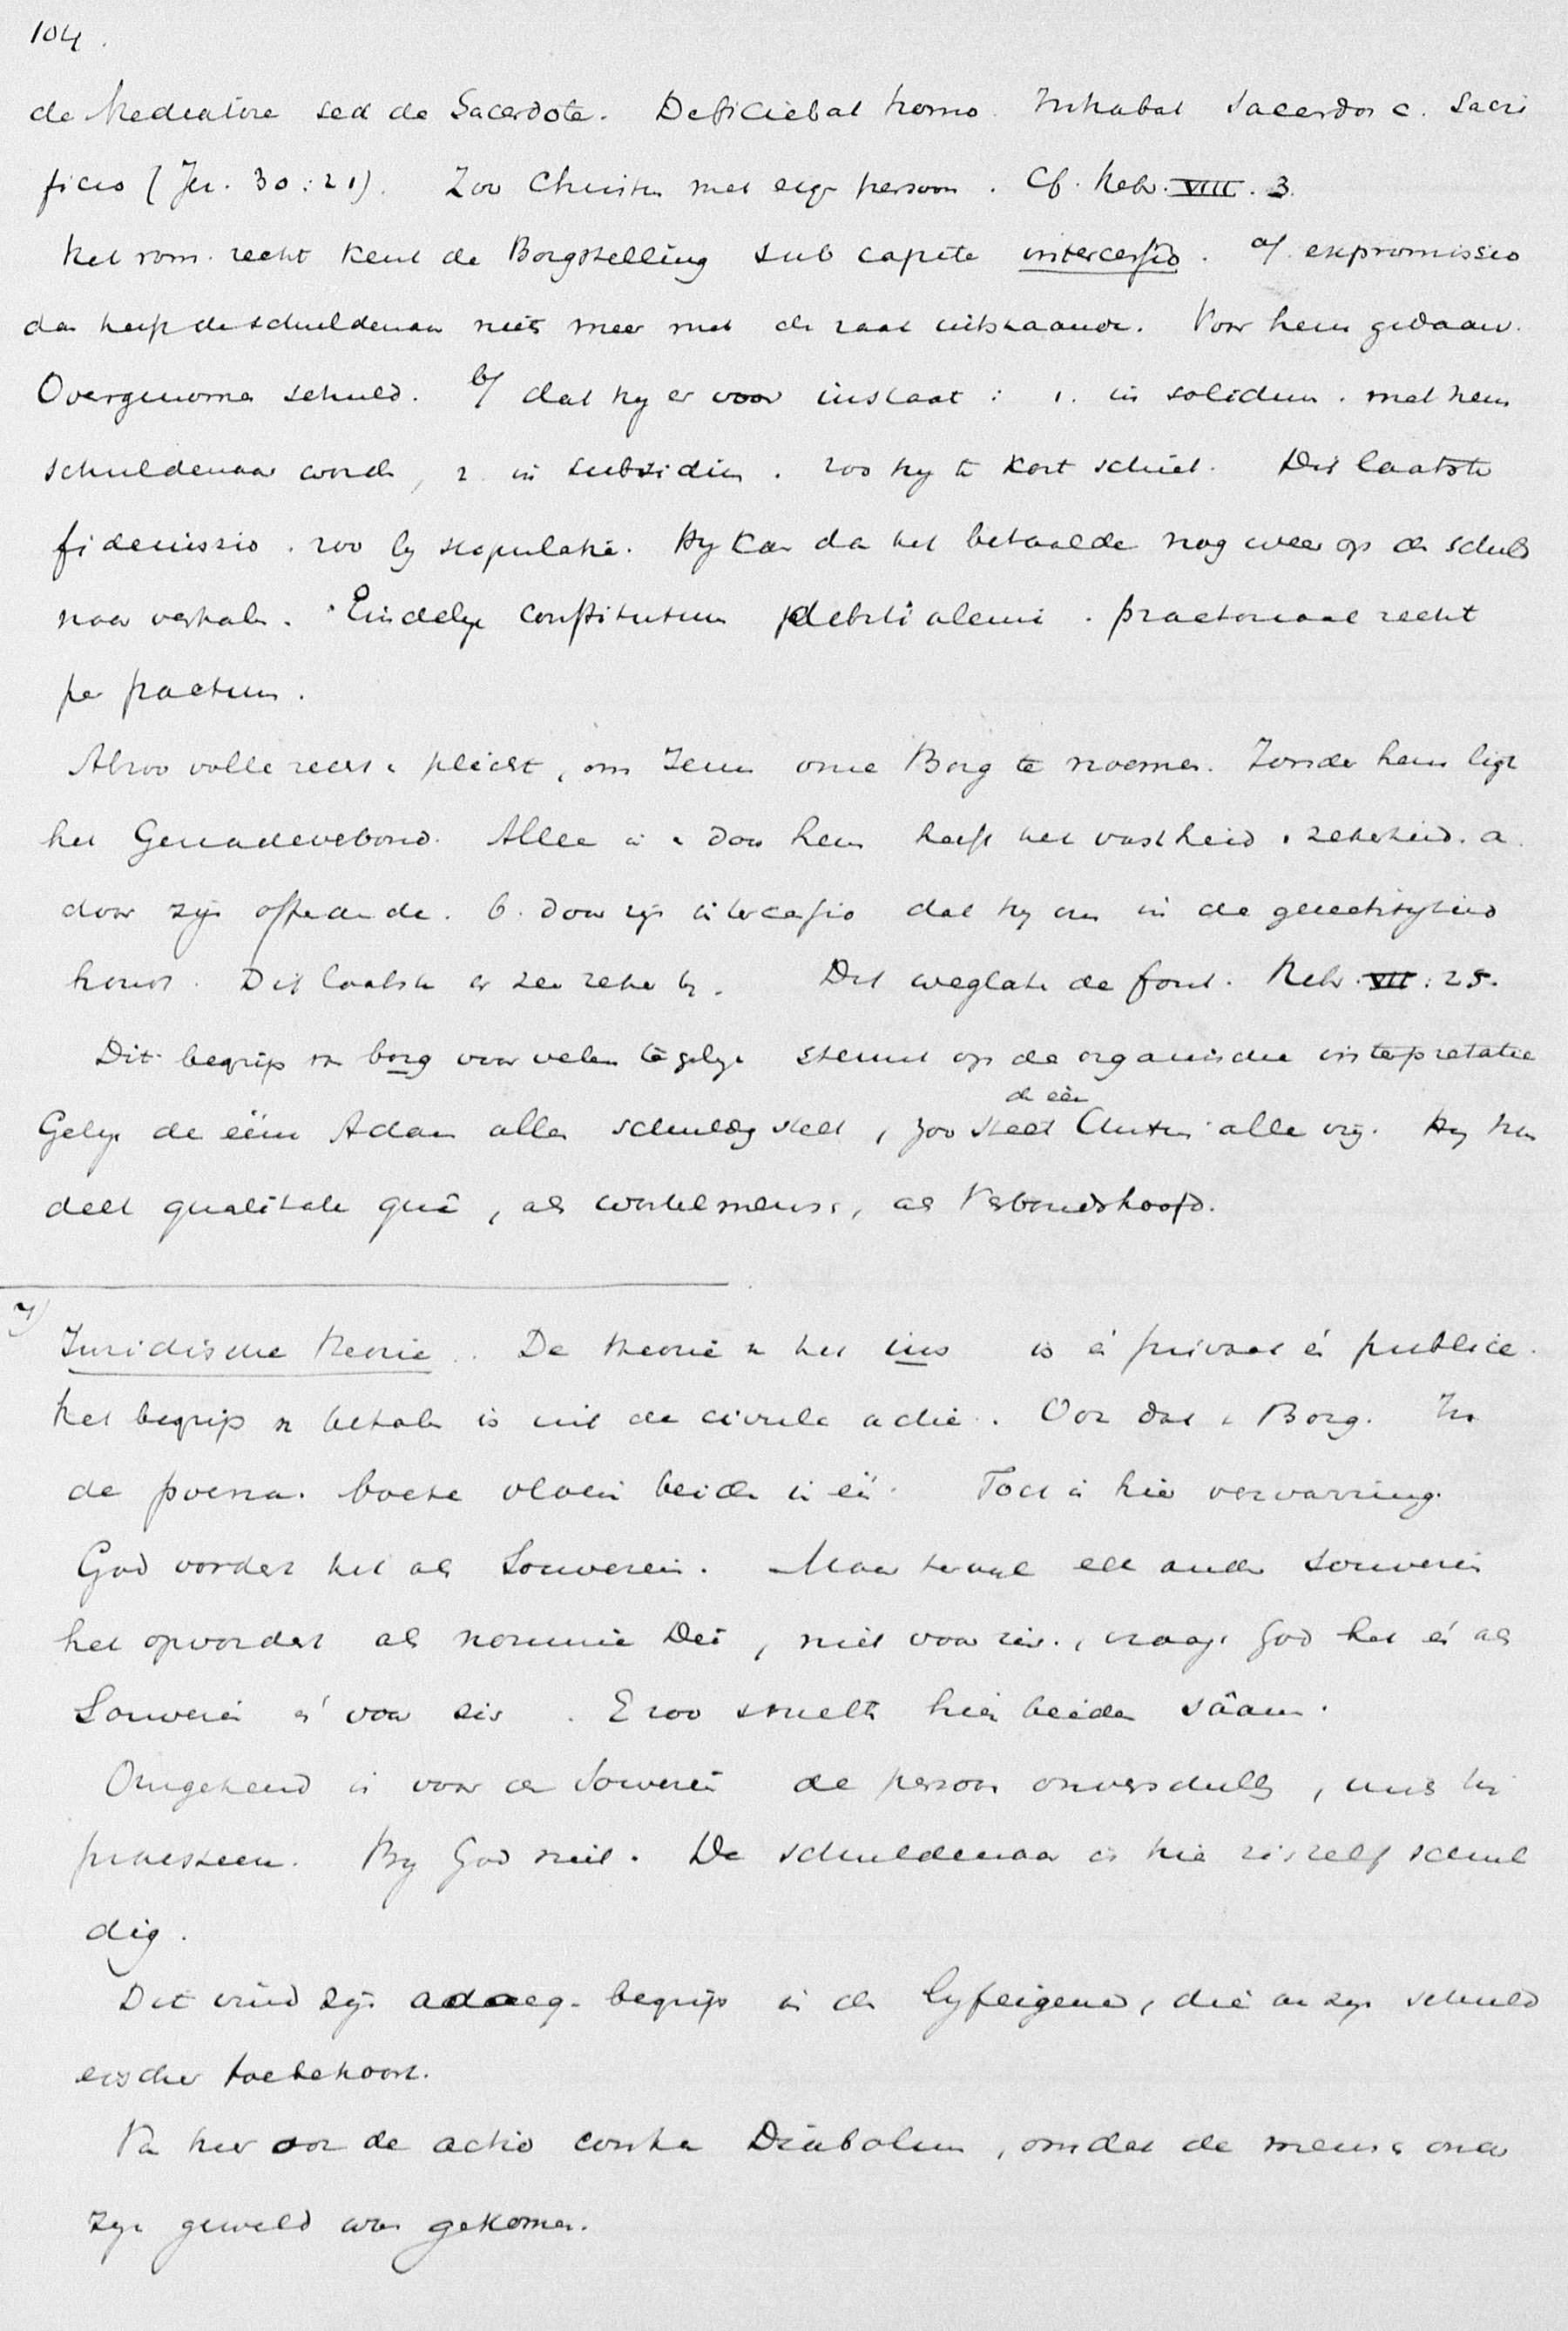 104.
de Mediatore sed de Sacerdote. Deficiebat homo. Intrabat Sacerdos c. Sacri
ficio (Jer. 30:21). Zoo Christus met eig. persoon. Cf. Hebr. VIII. 3.
Het rom. recht kent de Borgstelling sub capite intercessio. a/ expromissio
dan heeft de schuldenaar niets meer met de zaak uitstaande. Voor hem gedaan.
Overgenomen schuld. b/ dat hy er voor instaat: 1. in solidum. met hem
schuldenaar wordt, 2. in subsidium. zoo hy te kort schiet. Dit laatste
fideiussio. zoo by stipulatie. Hy kan dan het betaalde nog weer op den schuld
naar verhalen. Eindelyk constitutum debiti alieni. praetoriaal recht
per pactum.
Alzoo volle recht & plicht, om Jezus onze Borg te noemen. Zonder hem ligt
het Genadeverbond. Alleen in & door hem heeft het vastheid & zekerheid. a.
door zijn offerande. b. door zijn intercessio dat hy ons in de gerechtigheid
houdt. Dit laatste er zeer zeker by. Dit weglaten de fout. Hebr. VII:25.
Dit begrip v. borg voor velen tegelyk steunt op de organische interpretatie
de één
Gelyk de ééne Adam allen schuldig stelt, zoo stelt Christus alle vrij. Hy han
delt qualitate quâ, als wortelmensch, als Verbondshoofd.
7) Juridische theorie. De theorie v. het ius is én privaat én publiek.
Het begrip v. betalen is uit de civiele actie. Ook dat v. Borg. In
de poena. boete vloeien beide in één. Toch is hier verwarring.
God vordert het als Souverein. Maar terwyl elk ander souverein
het opvordert als nomine Dei, niet voor zich, vraagt God het én als
Souverein én voor zich. En zoo smelten hier beiden sâam.
Omgekeerd is voor den Souverein de persoon onverschillig, mits hij
praesteere. By God niet. De schuldenaar is hier zichzelf schul
dig.
Dit vindt zijn adaeq. begrip in den lyfeigene, die aan zyn schuld
eischer toebehoort.
Van hier ook de actio contra Diabolum, omdat de mensch onder
zyn geweld was gekomen.